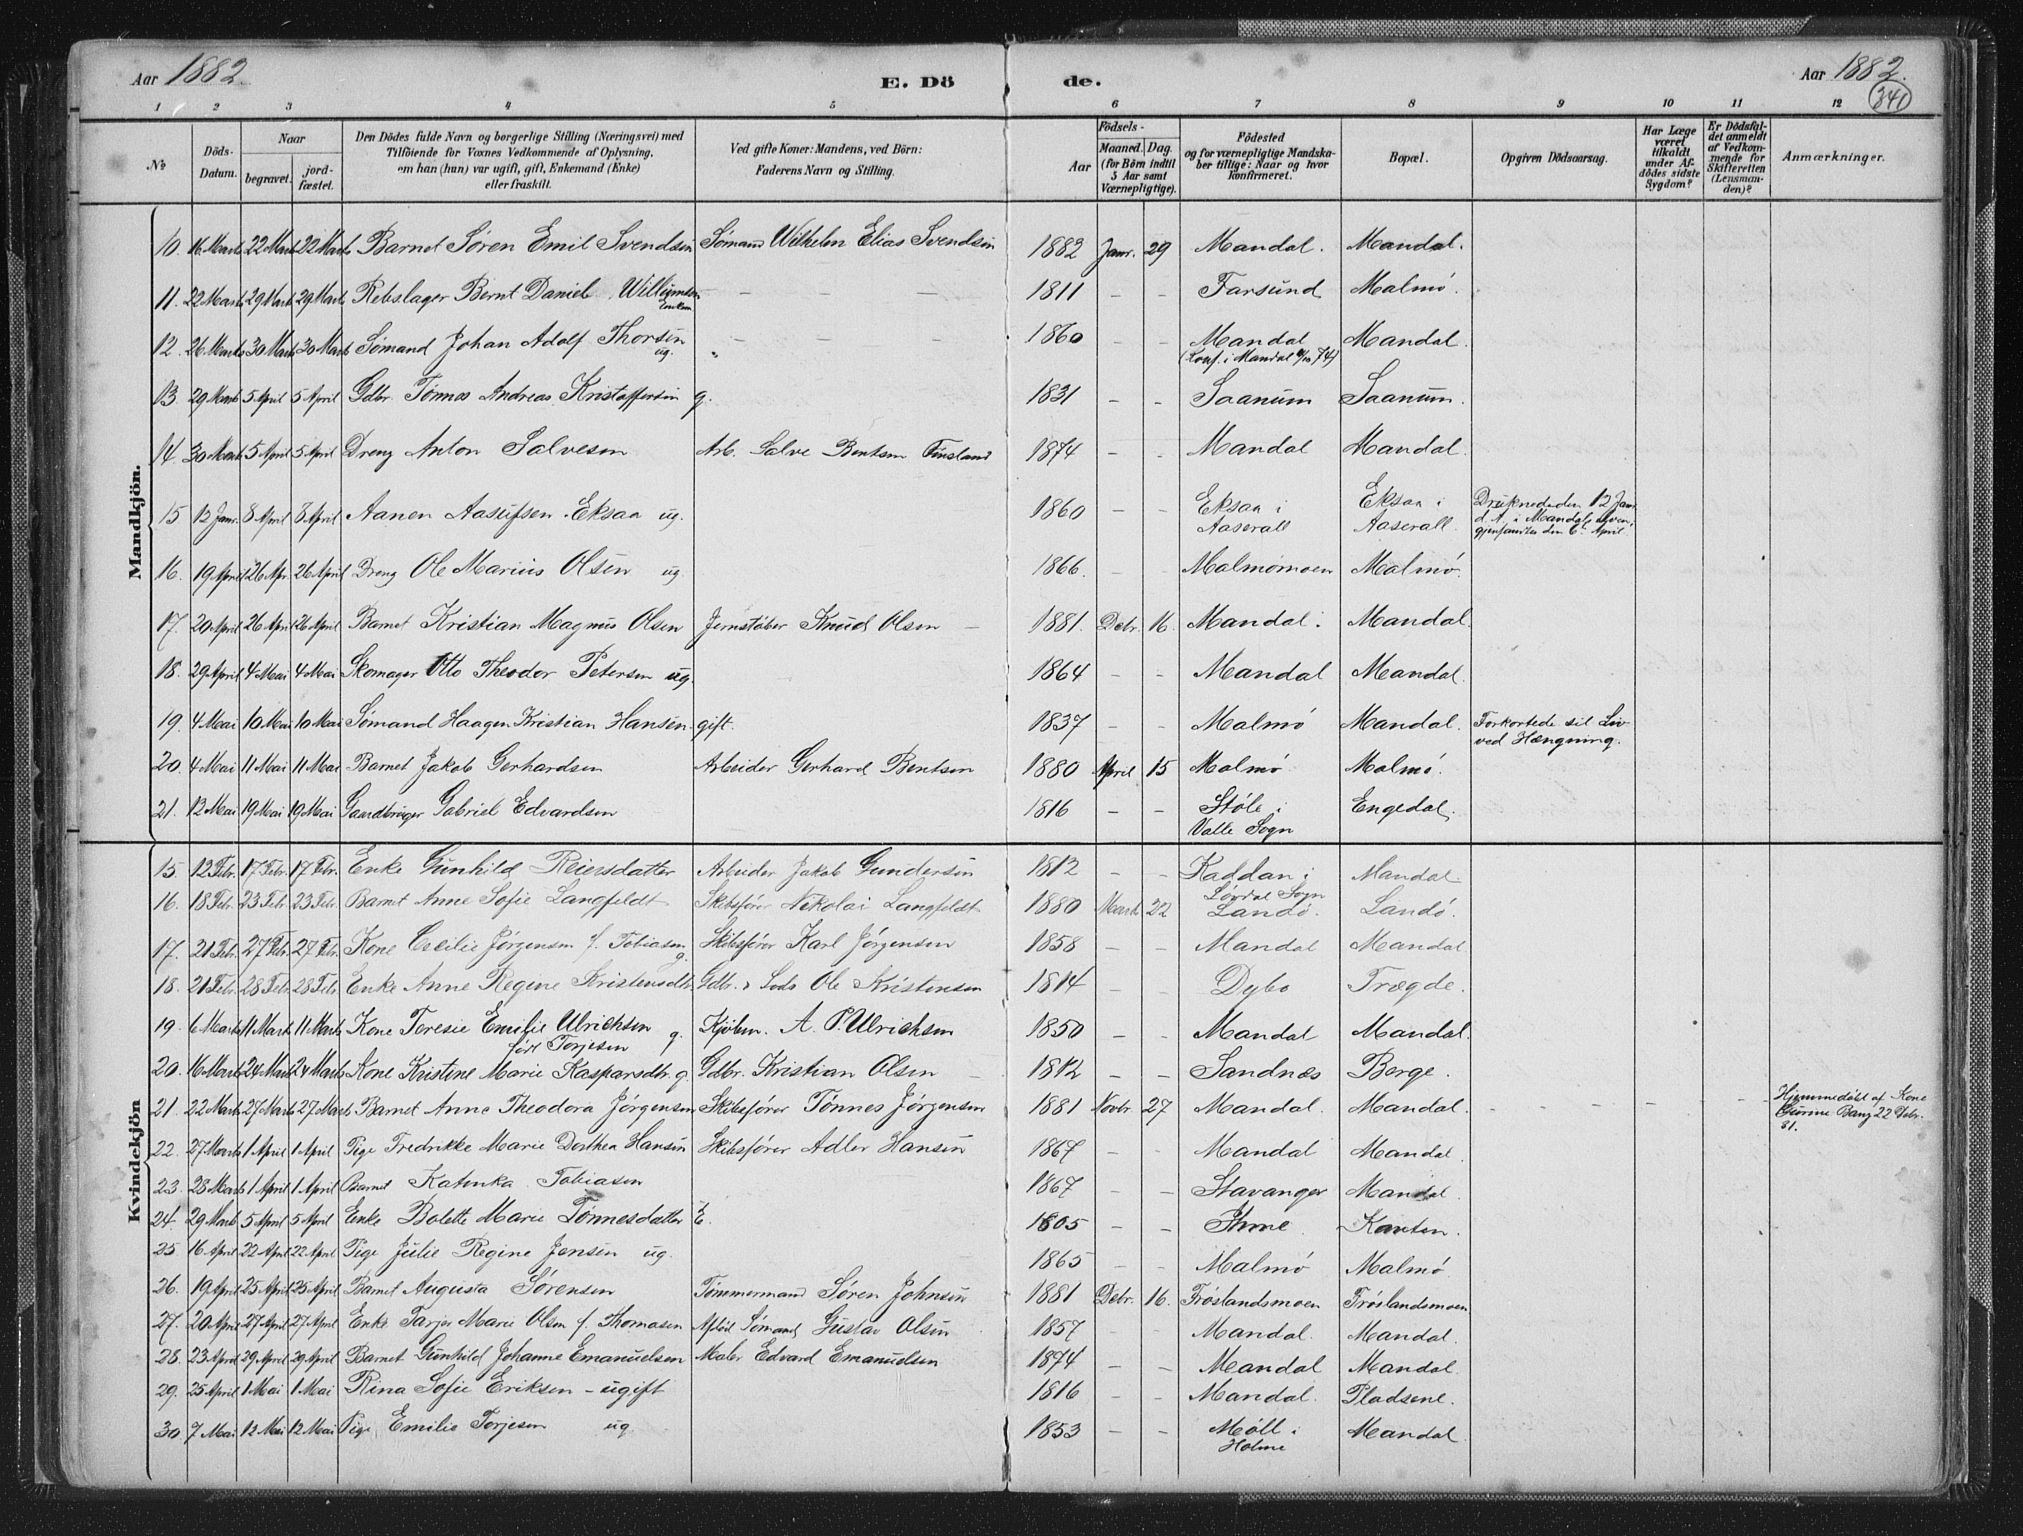 Aar 1882. E. Dö de. Aar 1882.
341
1 2 3 4 5 6 7 8 9 10 11 12
No
Döds-Datum.
Naar
begravet. jordfæstet.
Den Dödes fulde Navn og borgerlige Stilling (Næringsvei) med
Tilföiende for Voxnes Vedkommende af Oplysning,
om han (hun) var ugift, gift, Enkemand (Enke)
eller fraskilt.
Ved gifte Koner: Mandens, ved Börn:
Faderens Navn og Stilling.
Födsels-
Aar Maaned. Dag.
(for Börn indtil
5 Aar samt
Værnepligtige).
Födested
og for værnepligtige Mandska-
ber tillige: Naar og hvor
konfirmeret.
Bopæl.
Opgiven Dödsaarsag.
Har Læge
været
tilkaldt
under Af-
dödes sidste
Sygdom?
Er Dödsfal-
det anmeldt
af Vedkom-
mende for
Skifteretten
(Lensman-
den)?
Anmærkninger.
Mandkjön.
10. 16 Marts 22 Marts 22 Marts Barnet Søren Emil Svendsen Sømand Wilhelm Elias Svendsen 1882 Janr. 29 Mandal. Mandal.
11. 22 Marts 29 Marts 29 Marts Rebslager Bernt Daniel Willumsen Enkem. - - - 1811 - - Farsund Malmö.
12. 26 Marts 30 Marts 30 Marts Sømand Johan Adolf Thorsen ug. „ 1860 - Mandal Mandal.
(Konf. i Mandal 74)
13. 29 Marts 5 April 5 April Gdbr. Tønnes Andreas Kristoffersen g. 1831 - - Saanum Saanum.
14. 30 Marts 5 April 5 April Dreng Anton Salvesen Arb. Salve Bentsen Finsland 1874 - - Mandal Mandal.
15 12 Janr. 8 April 8 April Aanen Aasulfsen Eksaa ug. 1860 - - Eksaa i Aaserall Eksaa i Aaserall. Druknede den 12 Janr.
d. A. i Mandals elven,
gjenfandtes den 6. April
16. 19 April 26 Apr. 26 April Dreng Ole Marius Olsen ug. 1866. - - Malmømoen Malmö.
17. 20 April 26 April 26 April Barnet Kristian Magnus Olsen Jernstøber Knud Olsen - 1881. Debr. 16. Mandal. Mandal.
18. 29 April 4 Mai 4 Mai Skomager Otto Theodor Petersen ug. 1864 - - Mandal Mandal.
19. 4 Mai 10 Mai 10 Mai Sømand Haagen Kristian Hansen gift. 1837 - - Malmö Mandal. Forkortede sit Liv
ved Hængning.
20. 4 Mai 11 Mai 11 Mai Barnet Jakob Gerhardsen Arbeider Gerhard Bentsen 1880 April 15 Malmö Malmö.
21. 12 Mai 19 Mai 19 Mai Gaardbruger Gabriel Edvardsen 1816 - - Støle i Engedal.
Valle Sogn
Kvindekjön
15. 12 Febr. 17 Febr. 17 Febr. Enke Gunhild Reiersdatter Arbeider Jakob Gundersen 1812 - - Kaddan i Mandal.
Løvdal Sogn
16. 18 Febr. 23 Febr 23 Febr Barnet Anne Sofie Langfeldt Skibsfører Nikolai Langfeldt 1880 Marts 22 Landö. Landö.
17. 21 Febr. 27 Febr. 27 Febr. Kone Cecilie Jørgensen f. Tobiasen g. Skibsfører Karl Jørgensen 1858 - - Mandal Mandal
18. 21 Febr. 28 Febr. 28 Febr. Enke Anne Regine Kristensdtr. Gdbr. Ole Kristensen 1814 - - Dybo Trægde.
19. 6 Marts 11 Marts 11 Marts Kone Teresie Emilie Ulrichsen g. Kjøbm. A. P. Ulrichsen 1850 - - Mandal Mandal.
født Torjesen
20. 16 Marts 24 Marts 24 Marts Kone Kristine Marie Kaspersdtr. g. Gdbr. Kristian Olsen 1812 - - Sandnæs Berge.
21. 22 Marts 27 Marts 27 Marts Barnet Anna Theodora Jørgensen Skibsfører Tønnes Jørgensen 1881 Novbr. 27 Mandal. Mandal. - - - Hjemmedøbt af Kone
Bang 22 Debr.
81.
22. 27 Marts 1 April 1 April Pige Fredrikke Marie Dorthea Hansen Skibsfører Adler Hansen 1867 - - Mandal Mandal.
23. 28 Marts 1 April 1 April Barnet Katinka Tobiasen 1867 - - Stavanger Mandal.
24. 29 Marts 5 April 5 April Enke Bolette Marie Tønnesdatter E. 1805 - - Ihme. Kaasten.
25 16 April 22 April 22 April Pige Julie Regine Jensen ug. 1865 - - Malmö Malmö.
26. 19 April 25 April 25 April Barnet Augusta Sørensen Tømmermand Søren Johnsen 1881 Debr. 16. Frøslandsmoen Frøslandsmoen
27. 20 April 27 April 27 April Enke Tarjer Marie Olsen f. Thomasen Afdød Sømand Gustav Olsen 1857 - - Mandal. Mandal.
28. 23 April 29 April 29 April Barnet Gunhild Johanne Emanuelsen Maler Edvard Emanuelsen 1874 - - Mandal Mandal.
29. 25 April 1 Mai 1 Mai Rina Sofie Eriksen - ugift 1816 - - Mandal. Pladsene.
30. 7 Mai 12 Mai 12 Mai Pige Emilie Torjesen ug 1853 - - Møll i Mandal.
Holme